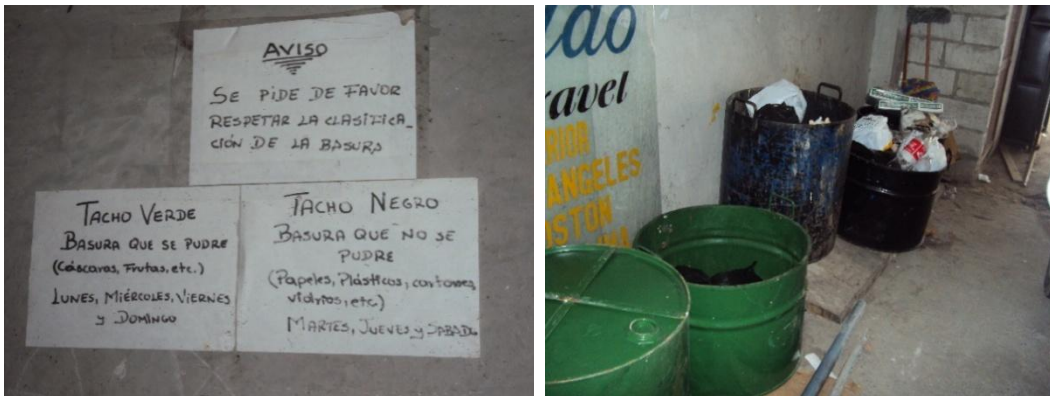 AVISO
SE PIDE DE FAVOR
RESPETAR LA CLASIFICA_
CIÓN DE LA BASURA
TACHO VERDE
BASURA QUE SE PUDRE
(Cáscaras, Frutas, etc.)
LUNES, MIÉRCOLES, VIERNES
y DOMINGO
TACHO NEGRO
BASURA QUE NO SE
PUDRE
(Papeles, Plásticos, cartones,
vidrios, etc)
MARTES, JUEVES y SABADO
ravel
RIOR
ANGELES
STON